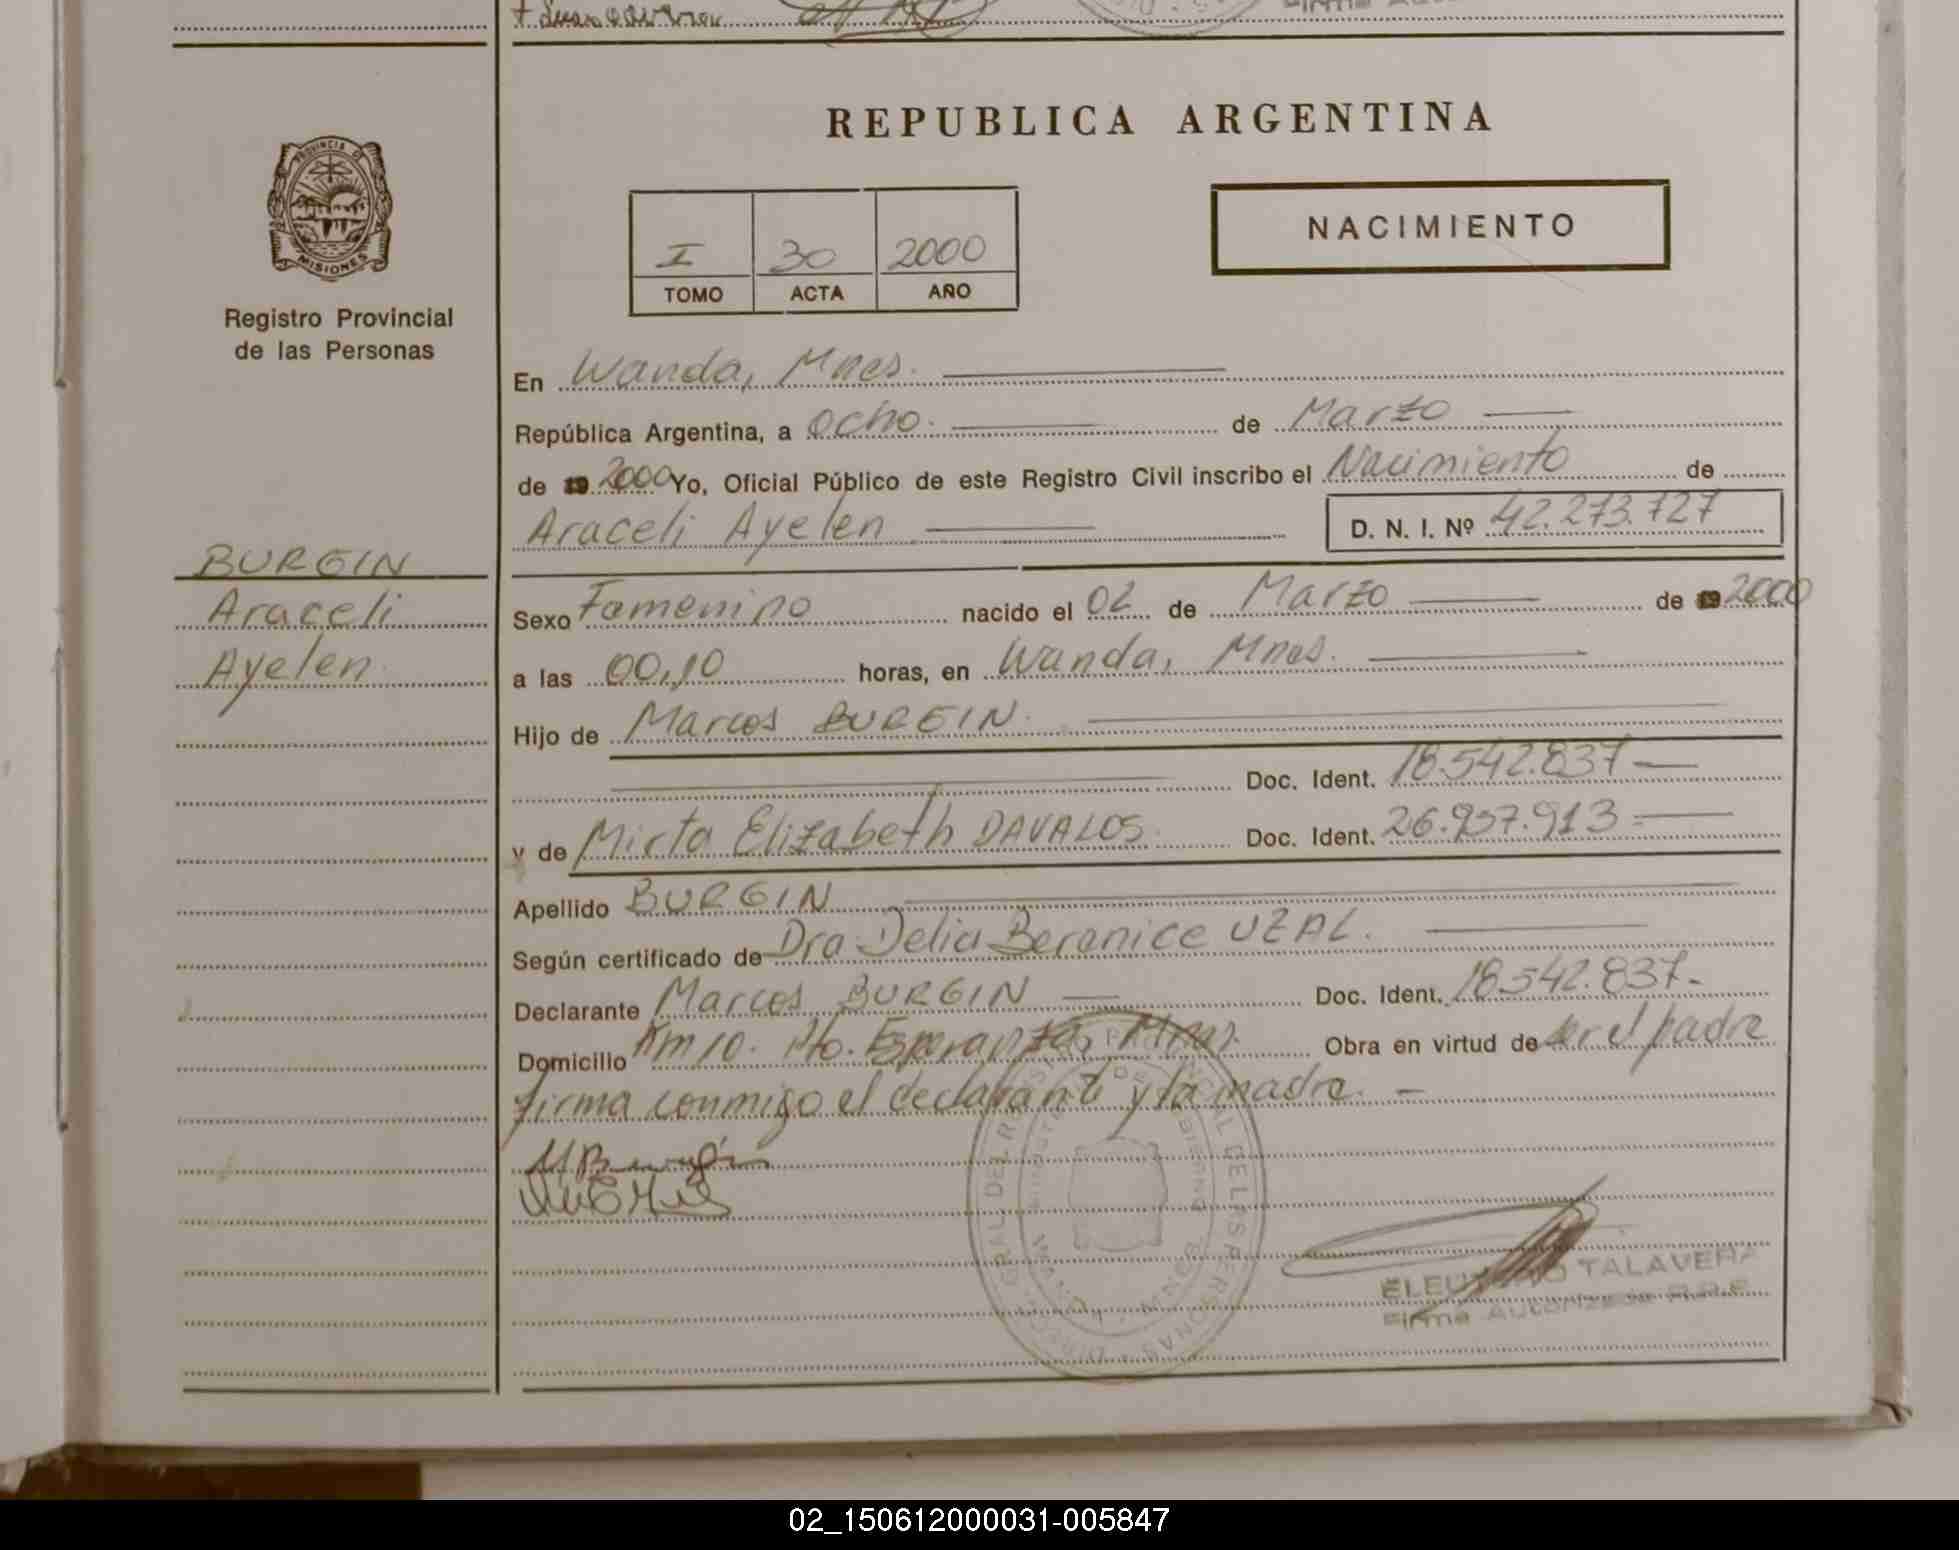 PROVINCIA DE
MISIONES
Registro Provincial
de las Personas
BURGIN
Araceli
Ayelen
REPUBLICA ARGENTINA
I 30 2000
TOMO ACTA AÑO
NACIMIENTO
En Wanda, Mnes.
República Argentina, a Ocho. de Marzo
de 19 2000 Yo, Oficial Público de este Registro Civil inscribo el Nacimiento de
Araceli Ayelen D. N. I. Nº 42.273.727
Sexo Femenino nacido el 02 de Marzo de 19 2000
a las 00,10 horas, en Wanda, Mnes.
Hijo de Marcos BURGIN.
Doc. Ident. 18.542.837
y de Mirta Elizabeth DAVALOS. Doc. Ident. 26.937.913
Apellido BURGIN
Según certificado de Dra. Delia Berenice UZAL.
Declarante Marcos BURGIN Doc. Ident. 18.542.837.-
Domicilio Km 10. Pto. Esperanza, Mnes. Obra en virtud de ser el padre
firma conmigo el declarante y la madre. -
M Burgin
TALAVERA
Firma Autorizada
02_150612000031-005847